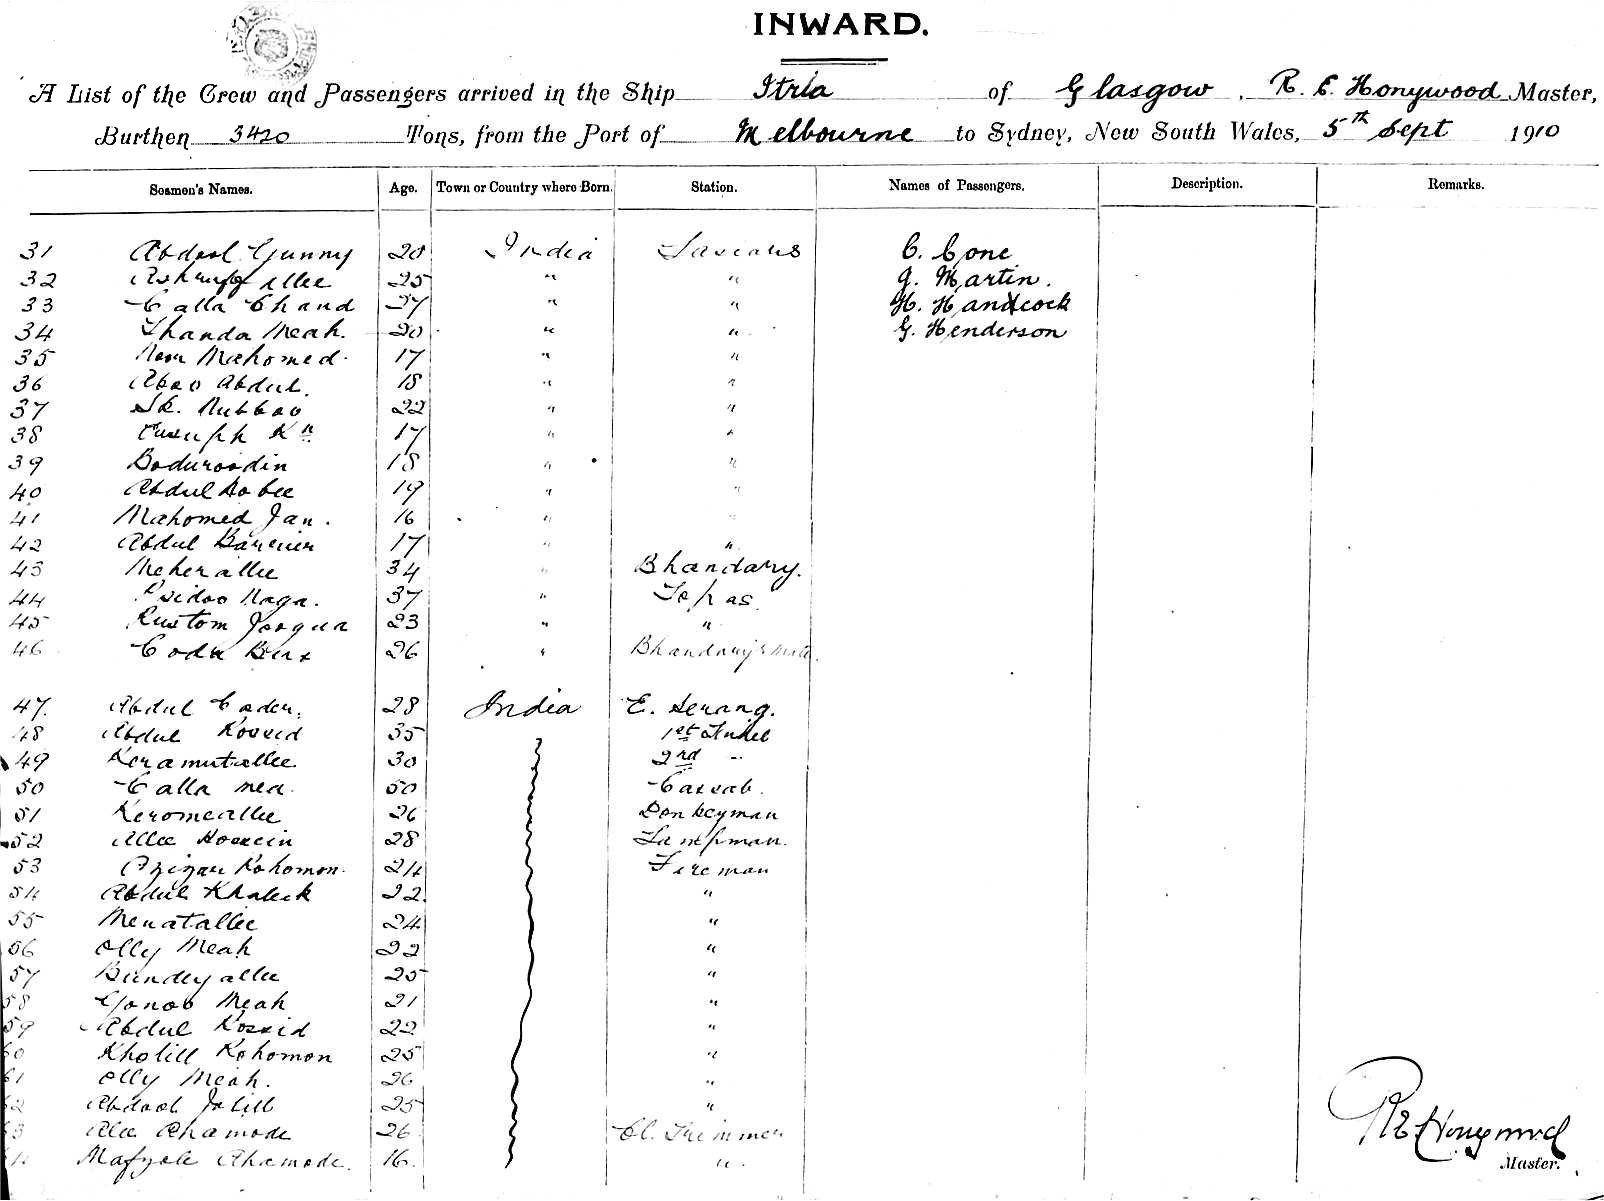 INWARD.
A List of the Crew and Passengers arrived in the Ship Itria of Glasgow, R. E. Honywood Master,
Burthen 3420 Tons, from the Port of Melbourne to Sydney, New South Wales, 5th Sept 1910
Seamen's Names. Age. Town or Country where Born. Station. Names of Passengers. Description. Remarks.
31 Abdool Gunny 20 India Lascars C. Cone
32 Ashruff Allee 25 " " J. Martin.
33 Calla Chand 27 " " H. Handcock
34 Thanda Meah. 20 " " G. Henderson
35 Noor Mahomed. 17 " "
36 Aboo Abdul. 18 " "
37 Sk. Nubboo 22 " "
38 Eusuph Kn 17 " "
39 Boduroodin 18 " "
40 Abdul Hobee 19 " "
41 Mahomed Jan. 16 " "
42 Abdul 17 " "
43 Meherallee 34 " Bhandary.
44 Naga. 37 " Topas
45 Rustom 23 " "
46 Codu Bux 26 " Bhandary's mate.
47. Abdul Cader. 28 India E. Serang.
48 Abdul Kossid 35 1st Tindel
49 Keramutallee 30 2nd "
50 Calla mea. 50 Cassab.
51 Keromeallee 26 Donkeyman
52 Allee Hossein 28 Lampman.
53 Azizau Rohomon. 24 Fireman
54 Abdul Khaleck 22. "
55 Menatallee 24 "
56 Olly Meah 22 "
57 Bundeyallee 25 "
58 Gonoo Meah 21 "
59 Abdul Kossid 22 "
60 Kholill Rohomon 25 "
61 Olly Meah. 26 "
62 Abdool Jolill 25 "
63 Alee Ahamode 26 Cl. Trimmer
Mafyole Ahamode. 16. "
R E Honywood
Master.